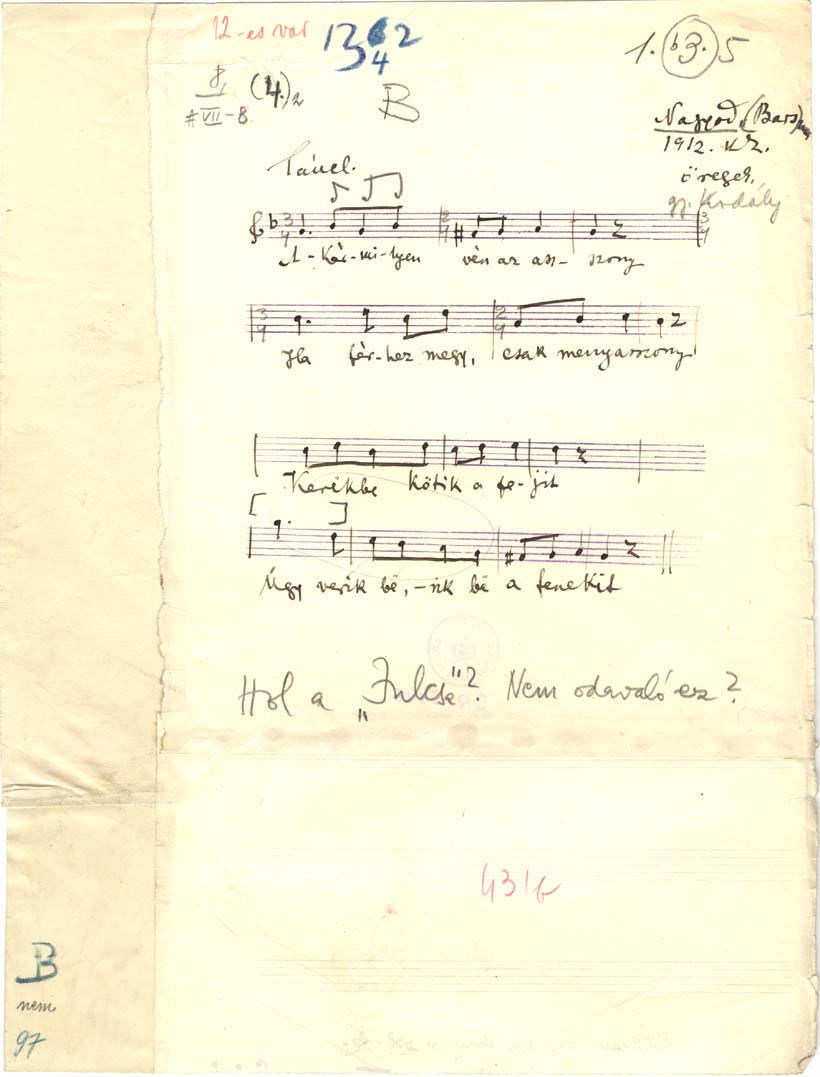 12-es var
1362
4
1. b3. 5
8,
(4.)2
# VII-8
B
Nagyod (Bars)
1912. KZ.
öregek,
gy. Kodály
Táncl.
3
4
2
4
3
4
A-kár-mi-lyen vén az asz-szony
3
4
2
4
Ha fér-hez megy, csak menyasszony
Kerékbe kötik a fe-jit
Úgy verik bé, -ik bé a fenekit
Hol a „Julcsa"? Nem odavaló ez?
431b
B
nem
97